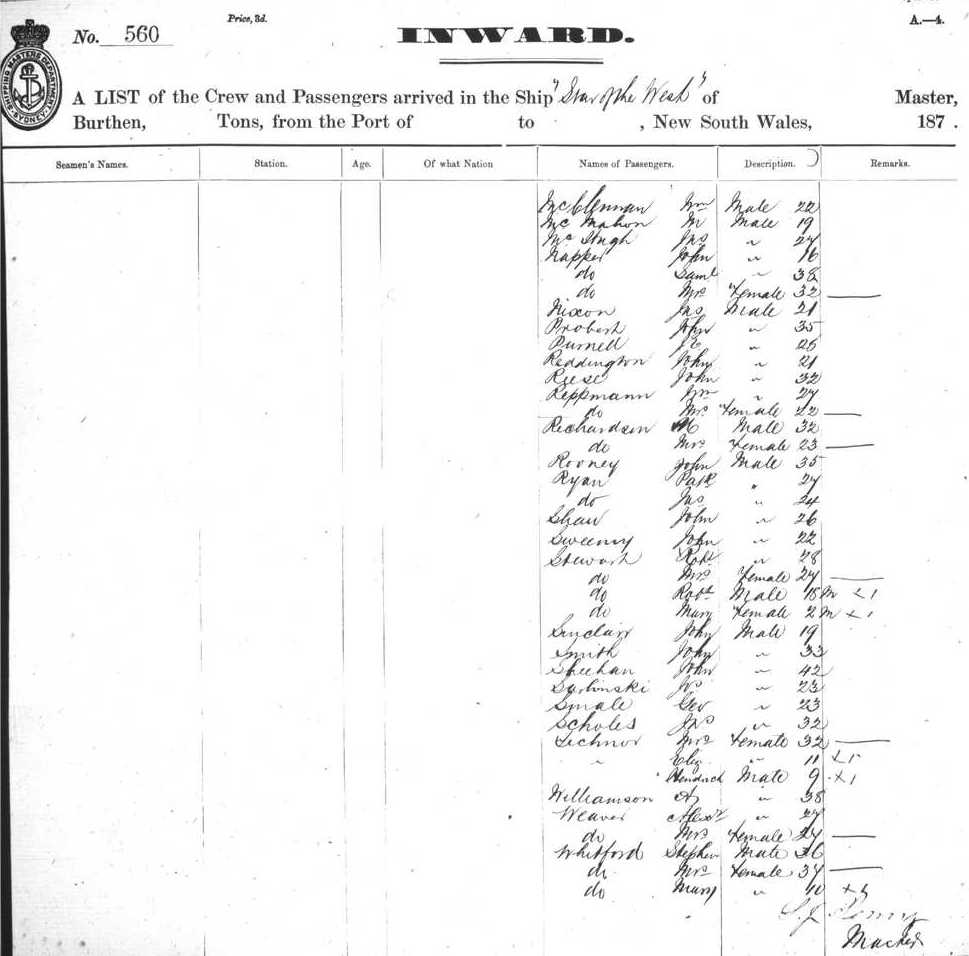 Price, 3d.
A.—4.
No. 560
INWARD.
SHIPPING MASTERS DEPARTMENT SYDNEY
A LIST of the Crew and Passengers arrived in the Ship "Star of the West" of Master,
Burthen, Tons, from the Port of to , New South Wales, 187 .
Seamen's Names. Station. Age. Of what Nation Names of Passengers. Description. Remarks.
McClennan Wm Male 22
McMahon M Male 19
Jas " 27
Napper John " 16
do Saml " 38
do Mrs Female 32 —
Nixon Jas Male 21
Probert John " 35
Purnell "
Reddington John " 21
Reese John " 32
Reppmann Wm " 27
do Mrs Female 22 —
Richardson Male 32
do Mrs Female 23 —
Rooney John Male 35
Ryan Patk " 27
do Jas " 24
Shaw John " 26
Sweeny John " 22
Stewart Robt " 28
do Mrs Female 27 —
do Robt Male 18 m x 1
do Mary Female 2 m x 1
Sinclair John Male 19
Smith John " 33
Sheehan John " 42
" 23
Smale Geo " 23
Scholes Jas " 32
Mrs Female 32 —
" Eliz " 11 x 1
Male 9 x 1
Williamson A " 38
Weaver Alexr " 27
do Mrs Female 27 —
Whitford Stephen Male 36
do Mrs Female 34 —
do Mary " 10
Master